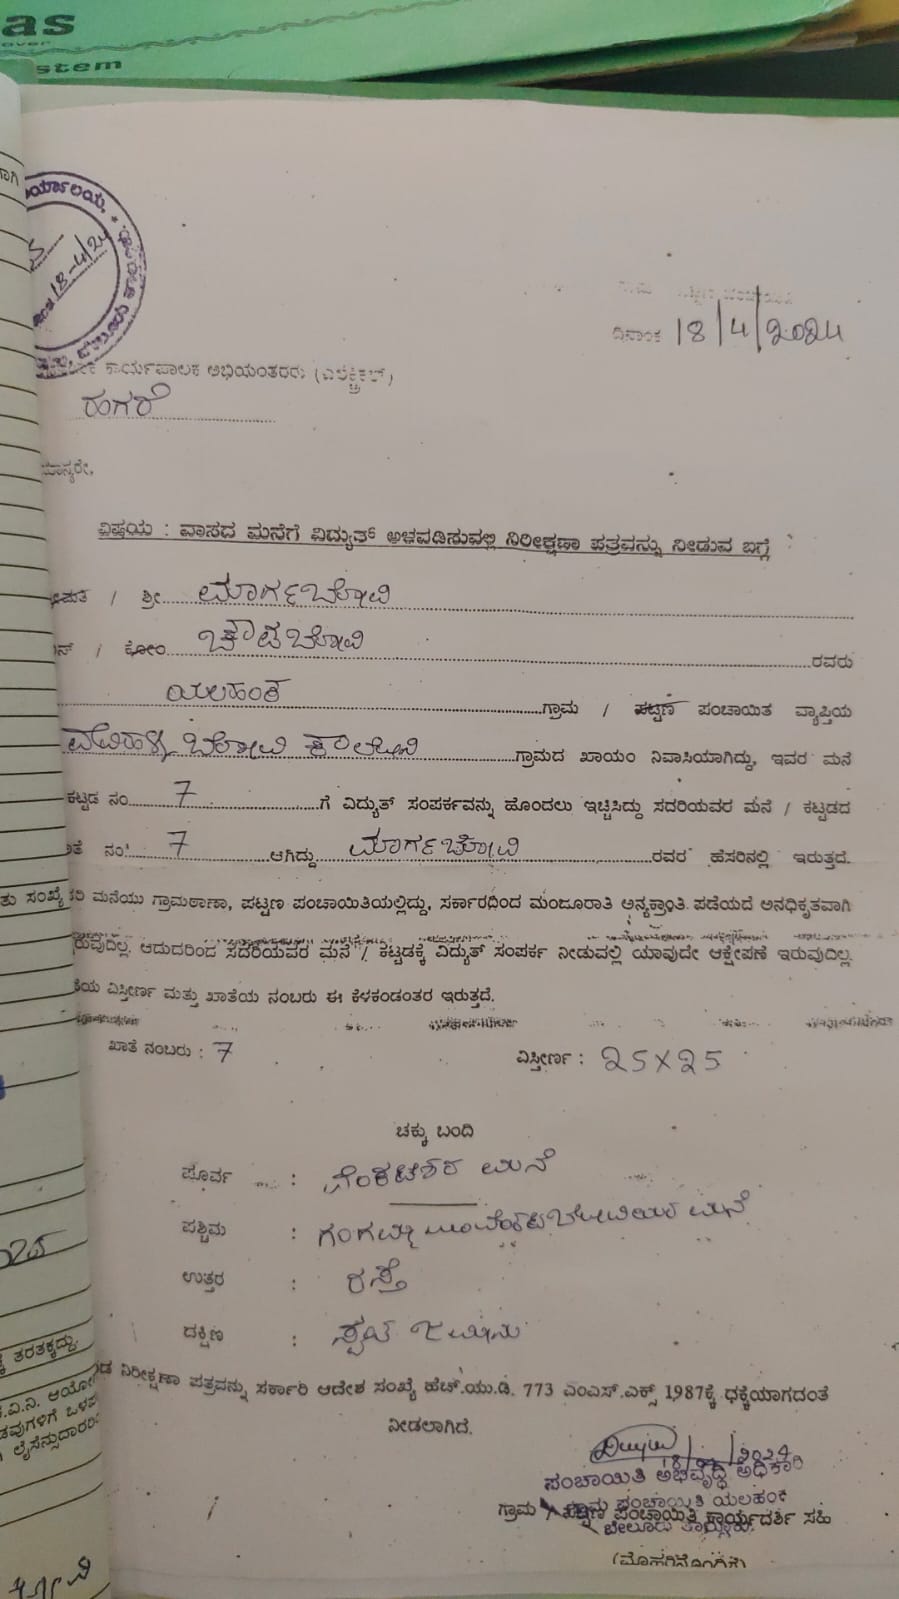 as
over
stem
ದಿನಾಂಕ 18/4/2024
18-4/24
ಕಾರ್ಯಪಾಲಕ ಅಭಿಯಂತರರು (ಎಲೆಕ್ಟ್ರಿಕಲ್)
ಹಗರೆ
ವಿಷಯ : ವಾಸದ ಮನೆಗೆ ವಿದ್ಯುತ್ ಅಳವಡಿಸುವಲ್ಲಿ ನಿರೀಕ್ಷಣಾ ಪತ್ರವನ್ನು ನೀಡುವ ಬಗ್ಗೆ
/ ಶ್ರೀ ಮಾರ್ಗಬೋವಿ
/ ಕೋಂ ಚೌಡಬೋವಿ ರವರು
ಯಲಹಂಕ ಗ್ರಾಮ / ಪಟ್ಟಣ ಪಂಚಾಯಿತಿ ವ್ಯಾಪ್ತಿಯ
ಬೋವಿ ಕಾಲೋನಿ ಗ್ರಾಮದ ಖಾಯಂ ನಿವಾಸಿಯಾಗಿದ್ದು, ಇವರ ಮನೆ
ಕಟ್ಟಡ ನಂ. 7 ಗೆ ವಿದ್ಯುತ್ ಸಂಪರ್ಕವನ್ನು ಹೊಂದಲು ಇಚ್ಚಿಸಿದ್ದು ಸದರಿಯವರ ಮನೆ / ಕಟ್ಟಡದ
ನಂ. 7 ಆಗಿದ್ದು ಮಾರ್ಗಬೋವಿ ರವರ ಹೆಸರಿನಲ್ಲಿ ಇರುತ್ತದೆ.
ಮನೆಯು ಗ್ರಾಮಠಾಣಾ, ಪಟ್ಟಣ ಪಂಚಾಯಿತಿಯಲ್ಲಿದ್ದು, ಸರ್ಕಾರದಿಂದ ಮಂಜೂರಾತಿ ಅನ್ಯಕ್ರಾಂತಿ ಪಡೆಯದೆ ಅನಧಿಕೃತವಾಗಿ
ಆದುದರಿಂದ ಸದರಿಯವರ ಮನೆ / ಕಟ್ಟಡಕ್ಕೆ ವಿದ್ಯುತ್ ಸಂಪರ್ಕ ನೀಡುವಲ್ಲಿ ಯಾವುದೇ ಆಕ್ಷೇಪಣೆ ಇರುವುದಿಲ್ಲ.
ವಿಸ್ತೀರ್ಣ ಮತ್ತು ಖಾತೆಯ ನಂಬರು ಈ ಕೆಳಕಂಡಂತರ ಇರುತ್ತದೆ.
ಖಾತೆ ನಂಬರು : 7 ವಿಸ್ತೀರ್ಣ : 25X25
ಚಕ್ಕು ಬಂದಿ
ಪೂರ್ವ : ವೆಂಕಟೇಶರ ಮನೆ
ಪಶ್ಚಿಮ : ಮನೆ
ಉತ್ತರ : ರಸ್ತೆ
ದಕ್ಷಿಣ : ಸ್ವಂತ ಜಮೀನು
ನಿರೀಕ್ಷಣಾ ಪತ್ರವನ್ನು ಸರ್ಕಾರಿ ಆದೇಶ ಸಂಖ್ಯೆ ಹೆಚ್.ಯು.ಡಿ. 773 ಎಂಎಸ್.ಎಕ್ಸ್ 1987ಕ್ಕೆ ಧಕ್ಕೆಯಾಗದಂತೆ
ನೀಡಲಾಗಿದೆ.
ಪಂಚಾಯಿತಿ ಅಭಿವೃದ್ಧಿ ಅಧಿಕಾರಿ
ಗ್ರಾಮ ಪಂಚಾಯಿತಿ ಯಲಹಂಕ
ಗ್ರಾಮ / ಪಟ್ಟಣ ಪಂಚಾಯಿತಿ ಕಾರ್ಯದರ್ಶಿ ಸಹಿ
ಬೇಲೂರು ತಾಲ್ಲೂಕು
(ಮೊಹರಿನೊಂದಿಗೆ)